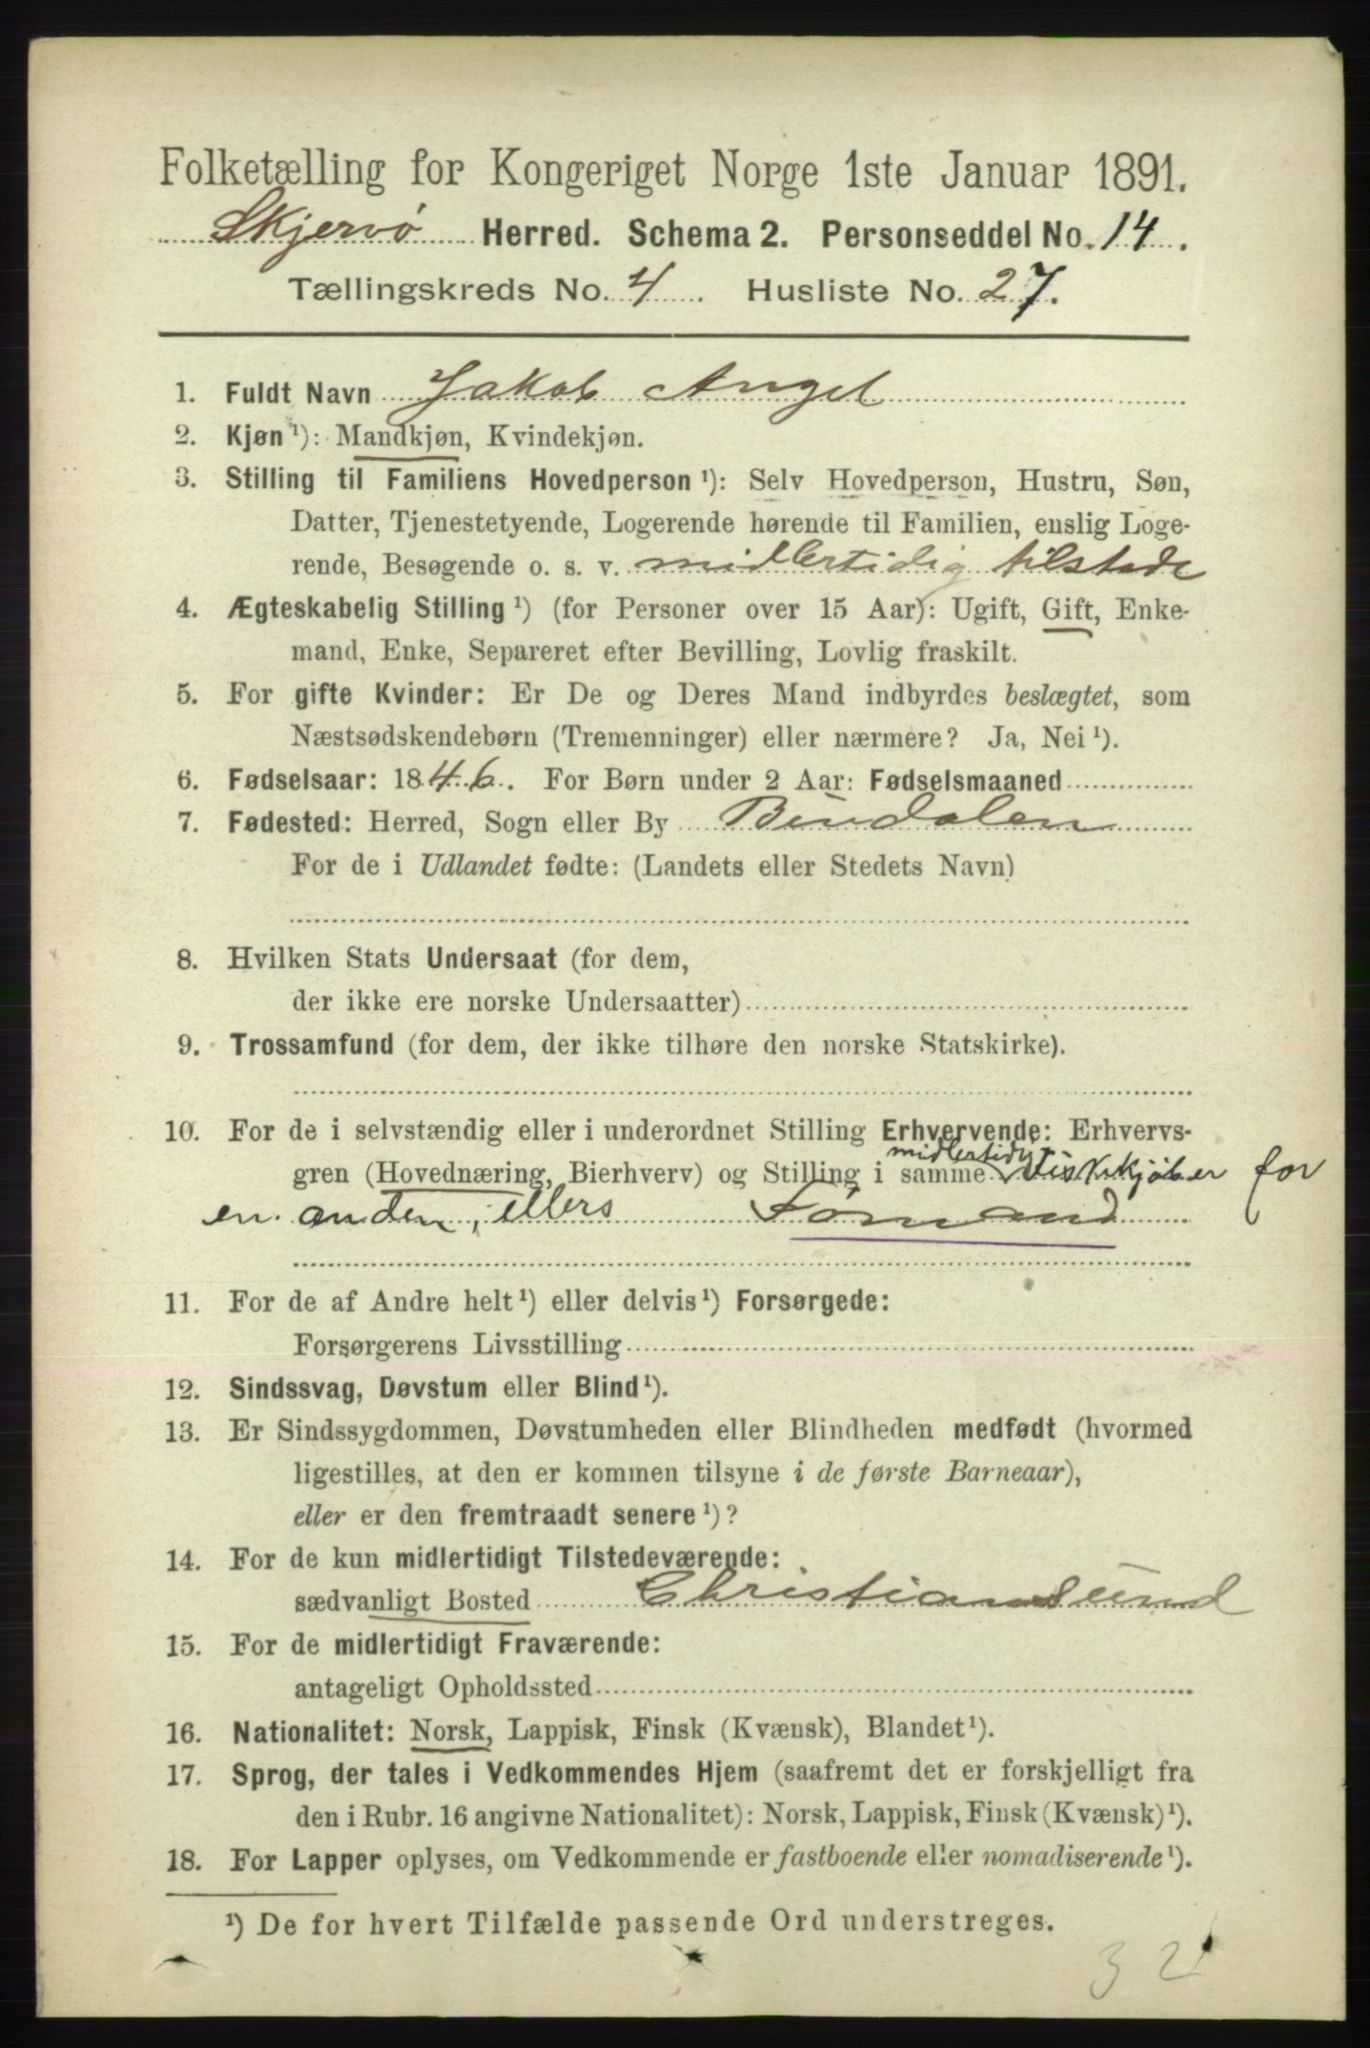 Folketælling for Kongeriget Norge 1ste Januar 1891.
Skjervö Herred. Schema 2. Personseddel No. 14.
Tællingskreds No. 4. Husliste No. 27.
1. Fuldt Navn Jakob Angel
2. Kjøn ¹): Mandkjøn, Kvindekjøn.
3. Stilling til Familiens Hovedperson ¹): Selv Hovedperson, Hustru, Søn,
Datter, Tjenestetyende, Logerende hørende til Familien, enslig Loge-
rende, Besøgende o. s. v. midlertidig tilstede
4. Ægteskabelig Stilling ¹) (for Personer over 15 Aar): Ugift, Gift, Enke-
mand, Enke, Separeret efter Bevilling, Lovlig fraskilt.
5. For gifte Kvinder: Er De og Deres Mand indbyrdes beslægtet, som
Næstsødskendebørn (Tremenninger) eller nærmere? Ja, Nei ¹).
6. Fødselsaar: 1846. For Børn under 2 Aar: Fødselsmaaned
7. Fødested: Herred, Sogn eller By Bindalen
For de i Udlandet fødte: (Landets eller Stedets Navn)
8. Hvilken Stats Undersaat (for dem,
der ikke ere norske Undersaatter)
9. Trossamfund (for dem, der ikke tilhøre den norske Statskirke).
10. For de i selvstændig eller i underordnet Stilling Erhvervende: Erhvervs-
gren (Hovednæring, Bierhverv) og Stilling i samme midlertidig Fiskekjöber for
en anden, ellers Förmand
11. For de af Andre helt ¹) eller delvis ¹) Forsørgede:
Forsørgerens Livsstilling
12. Sindssvag, Døvstum eller Blind ¹).
13. Er Sindssygdommen, Døvstumheden eller Blindheden medfødt (hvormed
ligestilles, at den er kommen tilsyne i de første Barneaar),
eller er den fremtraadt senere ¹)?
14. For de kun midlertidigt Tilstedeværende:
sædvanligt Bosted Christiansund
15. For de midlertidigt Fraværende:
antageligt Opholdssted
16. Nationalitet: Norsk, Lappisk, Finsk (Kvænsk), Blandet ¹).
17. Sprog, der tales i Vedkommendes Hjem (saafremt det er forskjelligt fra
den i Rubr. 16 angivne Nationalitet): Norsk, Lappisk, Finsk (Kvænsk) ¹).
18. For Lapper oplyses, om Vedkommende er fastboende eller nomadiserende ¹).
¹) De for hvert Tilfælde passende Ord understreges.
32